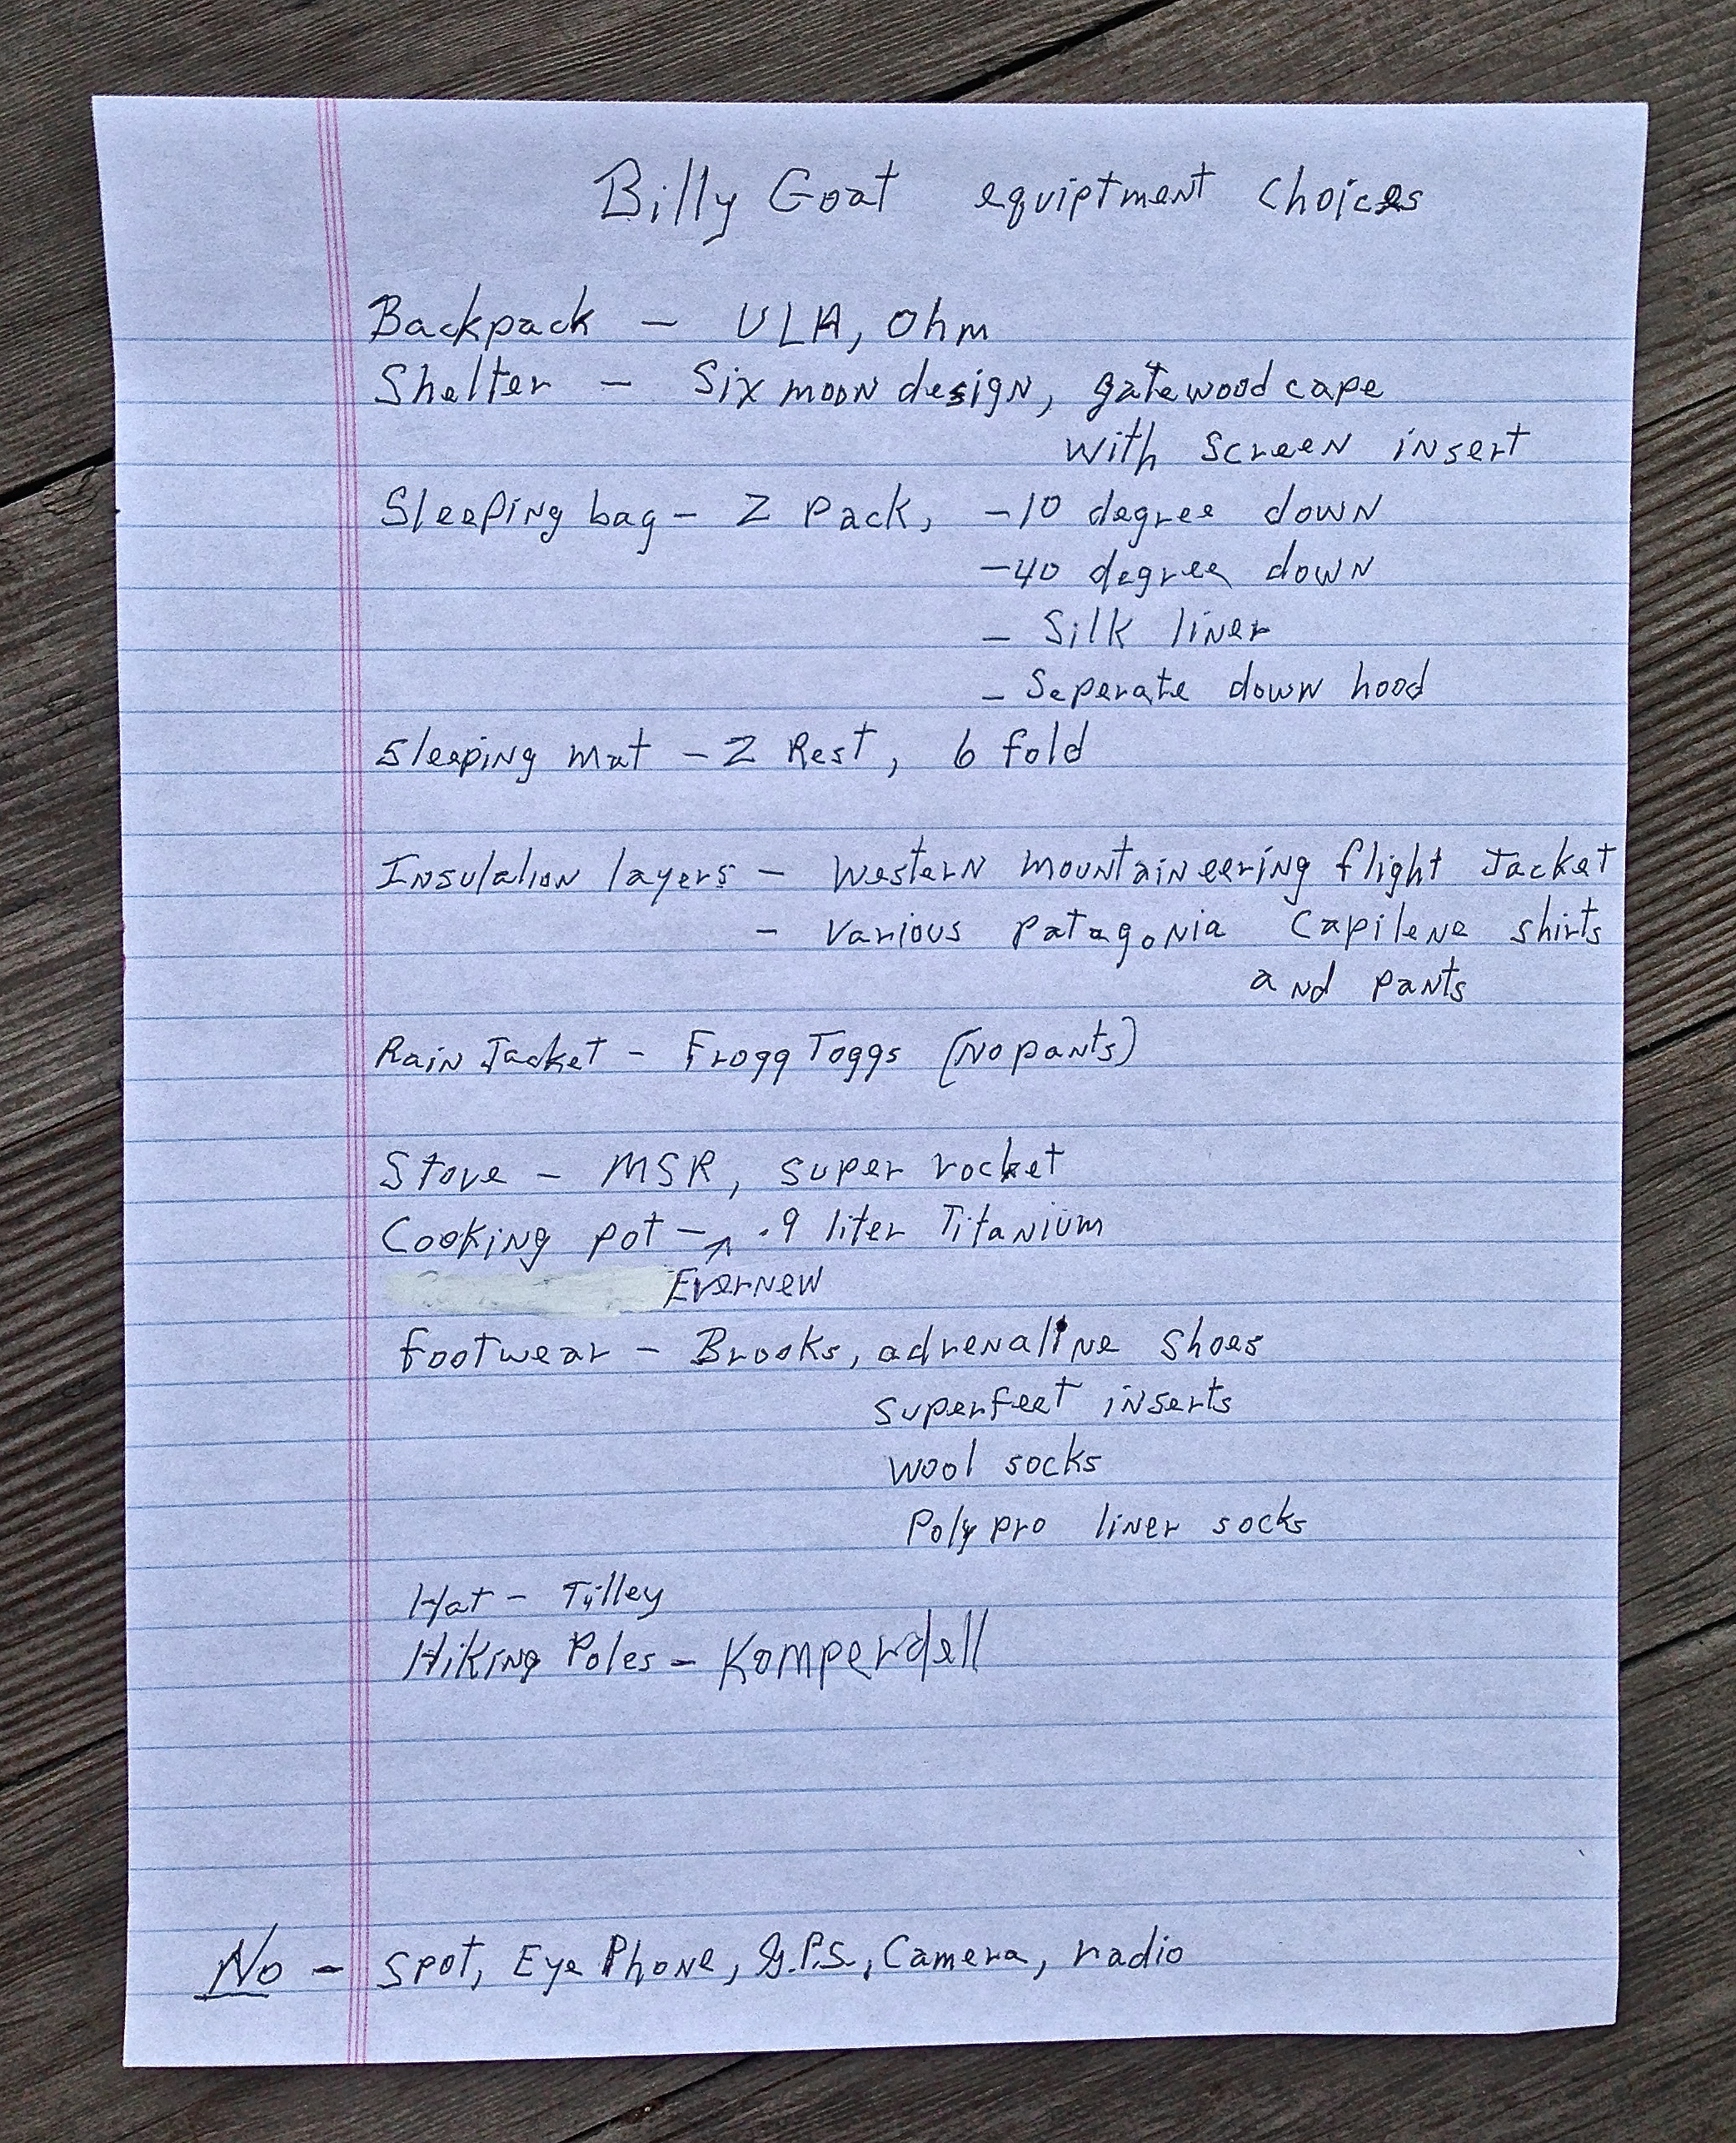 Billy Goat equiptment choices
Backpack - ULA, Ohm
Shelter - Six moon design, gatewood cape
with screen insert
Sleeping bag - Z Pack, -10 degree down
-40 degree down
- Silk liner
- Seperate down hood
Sleeping mat - Z Rest, 6 fold
Insulation layers - Western mountaineering flight Jacket
- Various Patagonia Capilene shirts
and pants
Rain Jacket - Frogg Toggs (No pants)
Stove - MSR, super rocket
Cooking pot - .9 liter Titanium
Evernew
footwear - Brooks, adrenaline shoes
superfeet inserts
wool socks
Polypro liner socks
Hat - Tilley
Hiking Poles - Komperdell
No - Spot, Eye Phone, G.P.S., Camera, radio